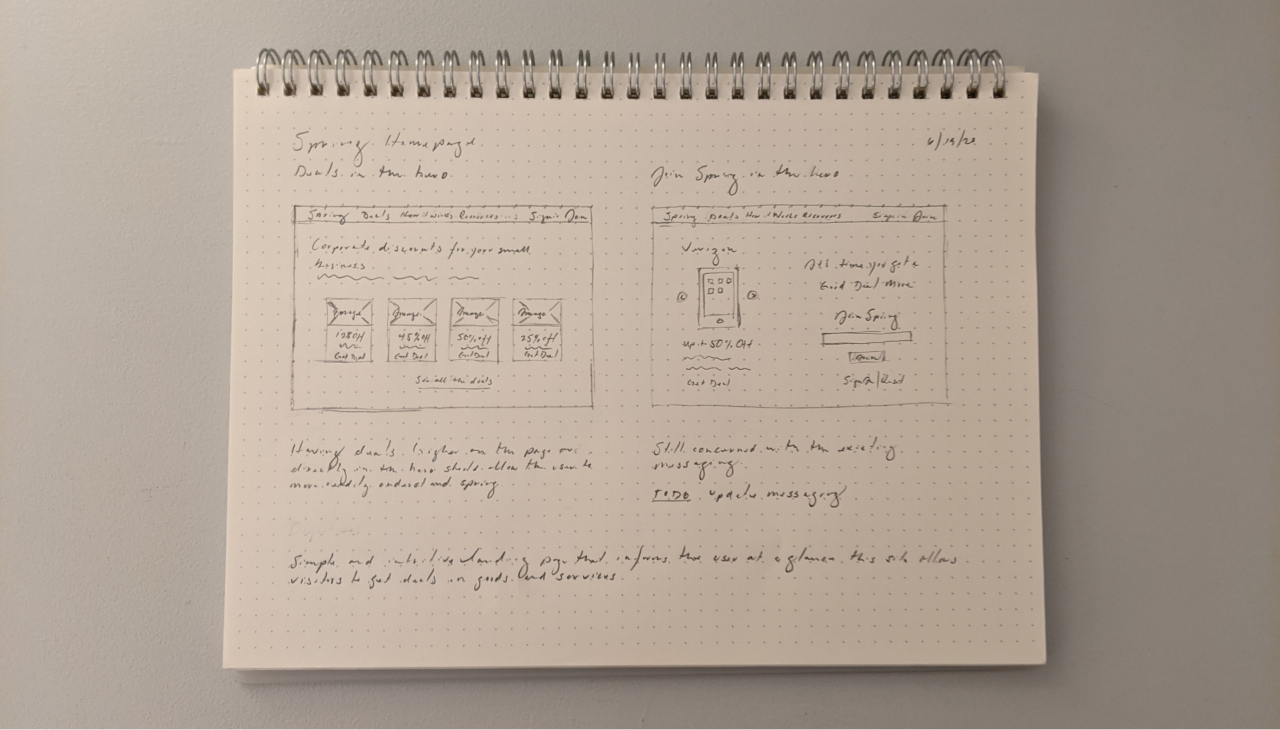 Spring Homepage
6/19/20
Deals in the hero
Spring Deals How it works Resources Sign in Join
Corporate discounts for your small
business
Image Image Image Image
45% off 50% off 25% off
Get Deal Get Deal Get Deal Get Deal
See all the deals
Having deals higher on the page or
directly in the hero should allow the user to
more readily understand spring
Join Spring in the hero
Spring Deals How it Works Resources Sign in Join
Verizon
up to 50% Off
Get Deal
It's time you get a
Good Deal More
Join Spring
Join
Still concerned with the existing
messaging.
TODO update messaging
Simple and intuitive landing page that informs the user at a glance this site allows
visitors to get deals on goods and services